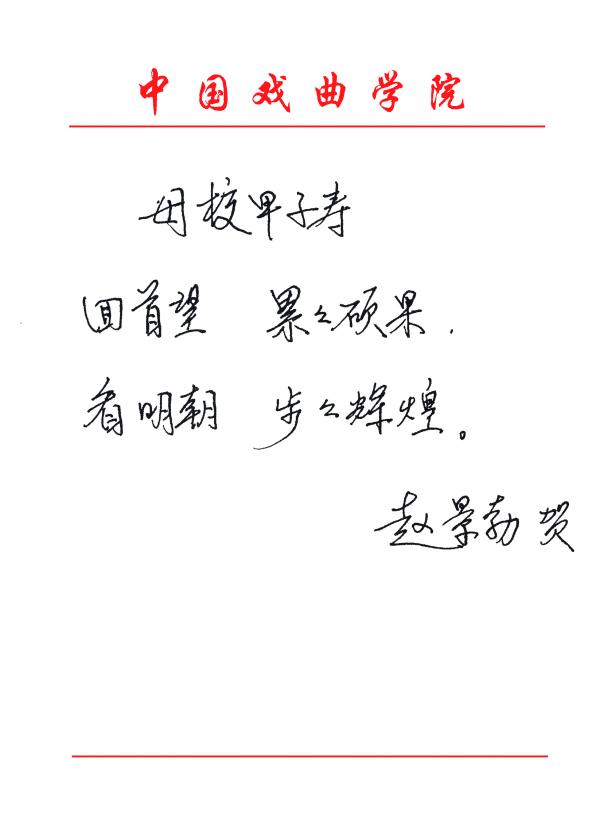 中国戏曲学院
母校甲子寿
回首望 累々硕果，
看明朝 步々辉煌。
赵景勃 贺